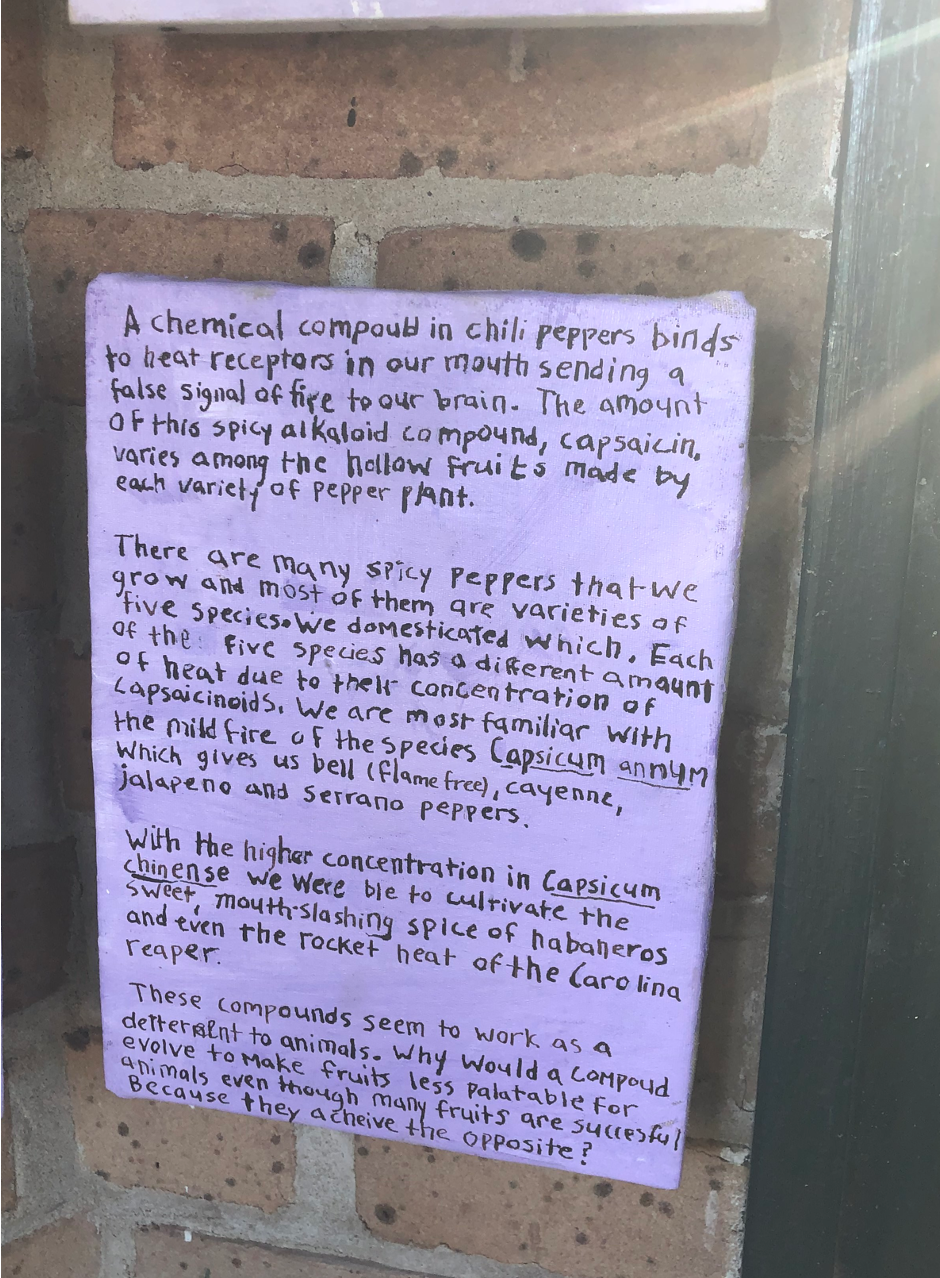 A chemical compoud in chili peppers binds
to heat receptors in our mouth sending a
false signal of fire to our brain. The amount
of this spicy alkaloid compound, capsaicin,
varies among the hollow fruits made by
each variety of pepper plant.
There are many spicy peppers that we
grow and most of them are varieties of
five species. We domesticated which. Each
of the five species has a different amount
of heat due to their concentration of
capsaicinoids. We are most familiar with
the mild fire of the species Capsicum annum
which gives us bell (flame free), cayenne,
jalapeno and serrano peppers.
With the higher concentration in Capsicum
chinense we were ble to cultivate the
sweet, mouth-slashing spice of habaneros
and even the rocket heat of the Carolina
reaper.
These compounds seem to work as a
detterent to animals. Why would a compoud
evolve to make fruits less palatable for
animals even though many fruits are succesful
Because they acheive the opposite?